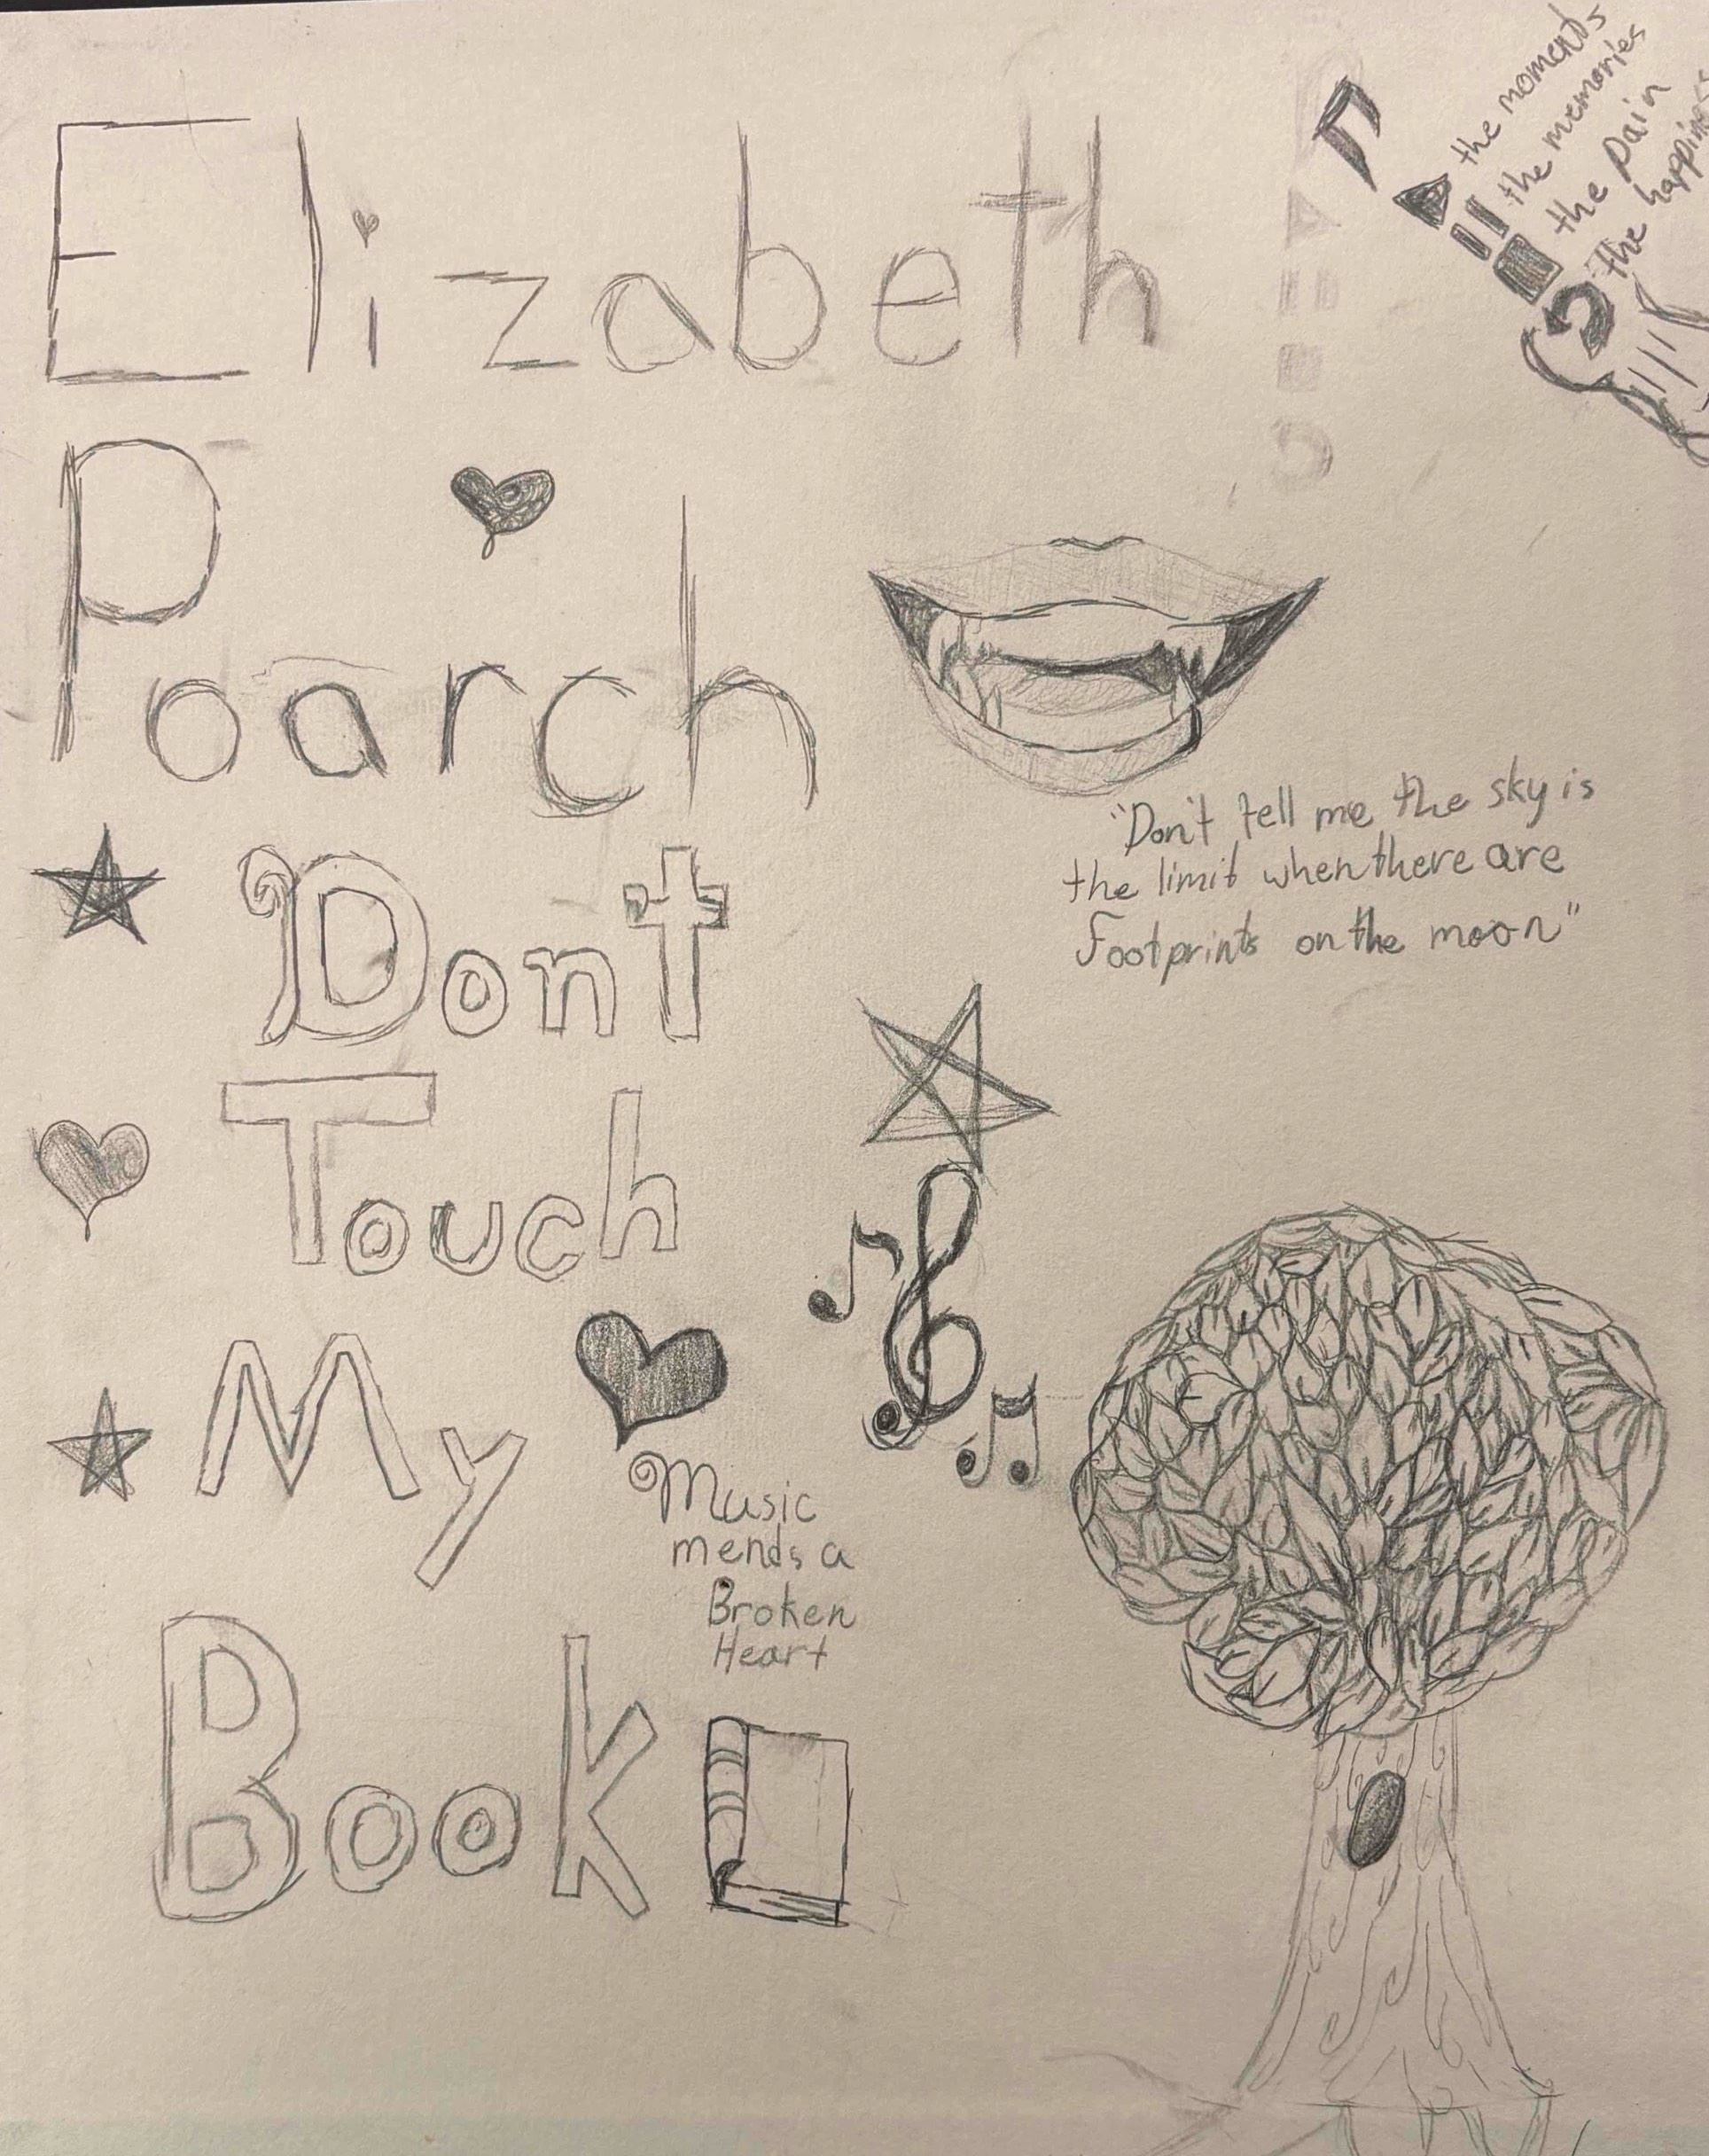 Elizabeth
Poarch
Dont
Touch
My
Book
the moments
the memories
the pain
the happiness
"Don't tell me the sky is
the limit when there are
Footprints on the moon"
Music
mends a
Broken
Heart